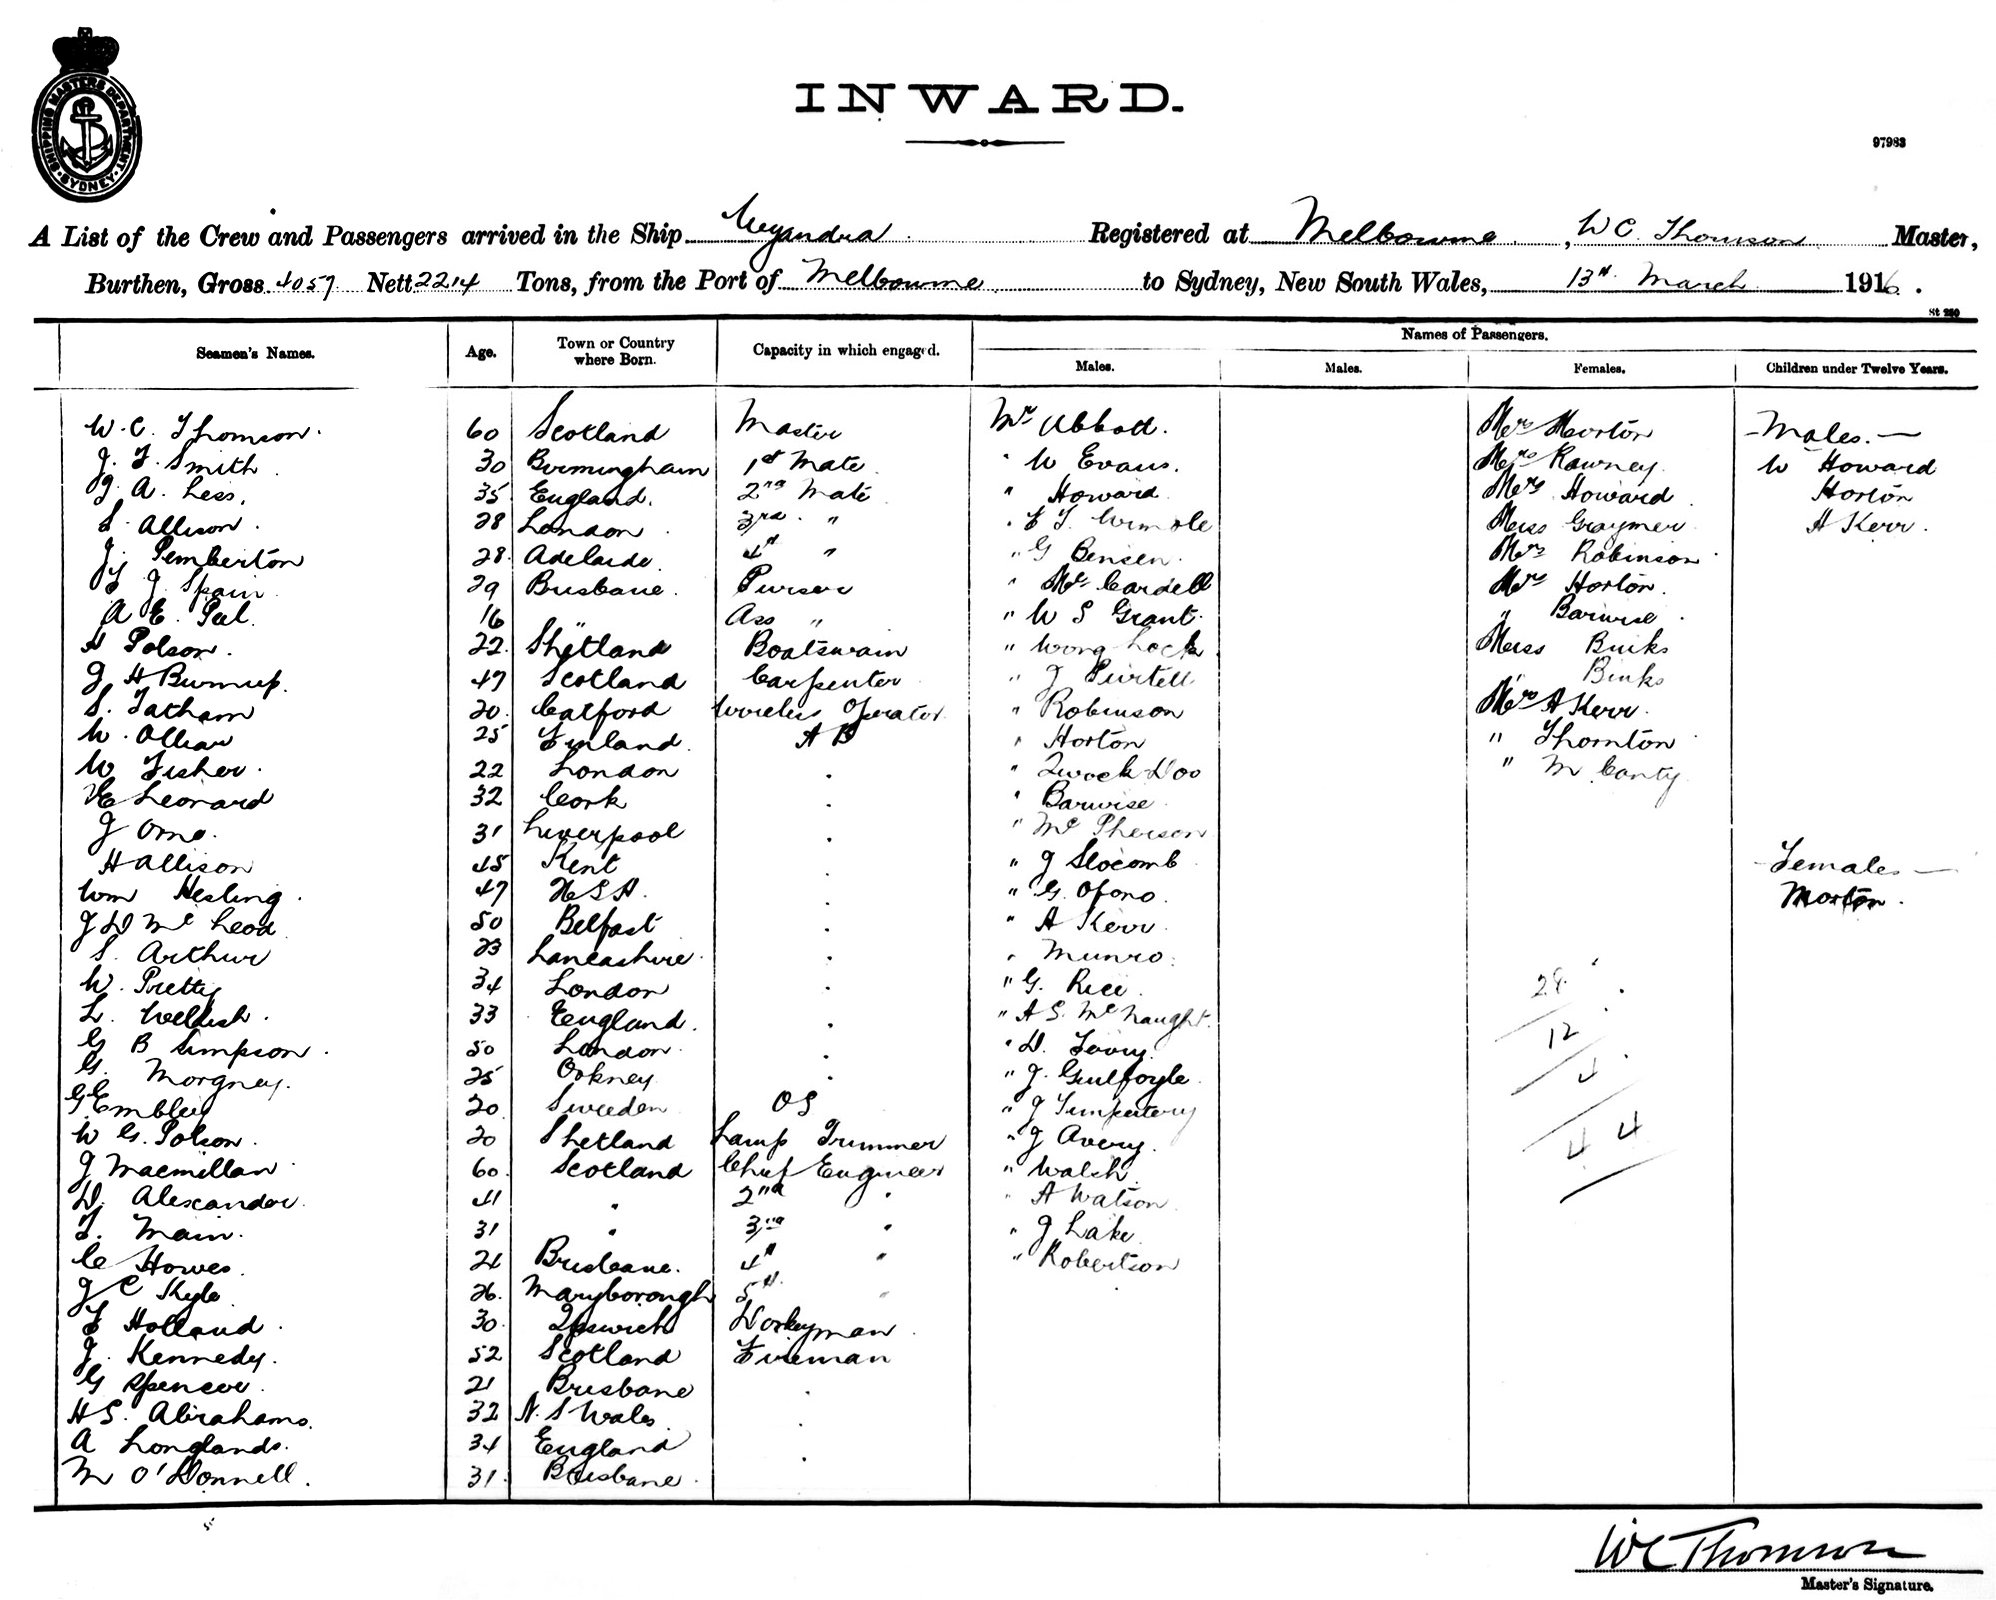 SHIPPING MASTERS DEPARTMENT
SYDNEY
INWARD.
97983
A List of the Crew and Passengers arrived in the Ship Wyandra Registered at Melbourne, W C Thomson Master,
Burthen, Gross 4057 Nett 2214 Tons, from the Port of Melbourne to Sydney, New South Wales, 13th March 1916.
St 250
Names of Passengers.
Seamen's Names. Age. Town or Country where Born. Capacity in which engaged. Males. Males. Females. Children under Twelve Years.
W. C. Thomson. 60 Scotland Master Mr Abbott. Mrs Morton - Males. -
J. F. Smith 30 Birmingham 1st Mate " W Evans. Mrs Rawney W Howard
J. A. Less. 35 England. 2nd Mate " Howard Mrs Howard Horton
S. Allison. 28 London 3rd " " Miss Graymer A Kerr.
J. Pemberton 28. Adelaide. 4th " " G Bensen. Mrs Robinson
J. Spain 29 Brisbane. Purser " Cardell Mrs Horton.
A E. Peel. 16 " Ass " " W S Grant. " Barwise.
A Polson. 22. Shetland Boatswain " Wong Lock Miss Binks
J H Burnup. 47 Scotland Carpenter " J Purtell " Binks
S. Tatham 20. Catford Wireless Operator " Robinson Mrs A Kerr.
W. 25 Finland. A B " Horton " Thornton
W Fisher. 22 London . " Quock Doo " M Canty
Leonard 32 Cork . " Barwise
J Orne. 31 Liverpool . " Mc Pherson
H Allison 45 Kent . " J Slocomb - Females -
Wm Hesling. 47 . " G. Ofono. Morton.
J D Mc Leod 50 Belfast . " A Kerr.
S. Arthur 23 Lancashire. . " Munro.
W. Pretty 34 London . " G. Rice. 28
L. Weldish. 33 England. . " A S. Mc Naught. 12
G B Simpson. 50 London. . " D.
G. Morgney. 25 Orkney . " J. Guilfoyle. 4
G Embley 20 Sweden O S " J
W G. Polson. 20 Shetland Lamp Trimmer " J Avery. 44
J Macmillan 60. Scotland Chief Engineer " Walsh
D. Alexander. 41 " 2nd " " A Watson
F. Main. 31 " 3rd " " J Lake
C Howes. 21 Brisbane. 4th " " Robertson
J C Kyle 26. Maryborough 5th "
F Holland. 30. Ipswich Donkeyman
J. Kennedy. 52 Scotland Fireman
G Spencer. 21 Brisbane .
H S. Abrahams. 32 N. S Wales .
A Longlands. 34 England .
M O'Donnell. 31. Brisbane .
W C Thomson
Master's Signature.